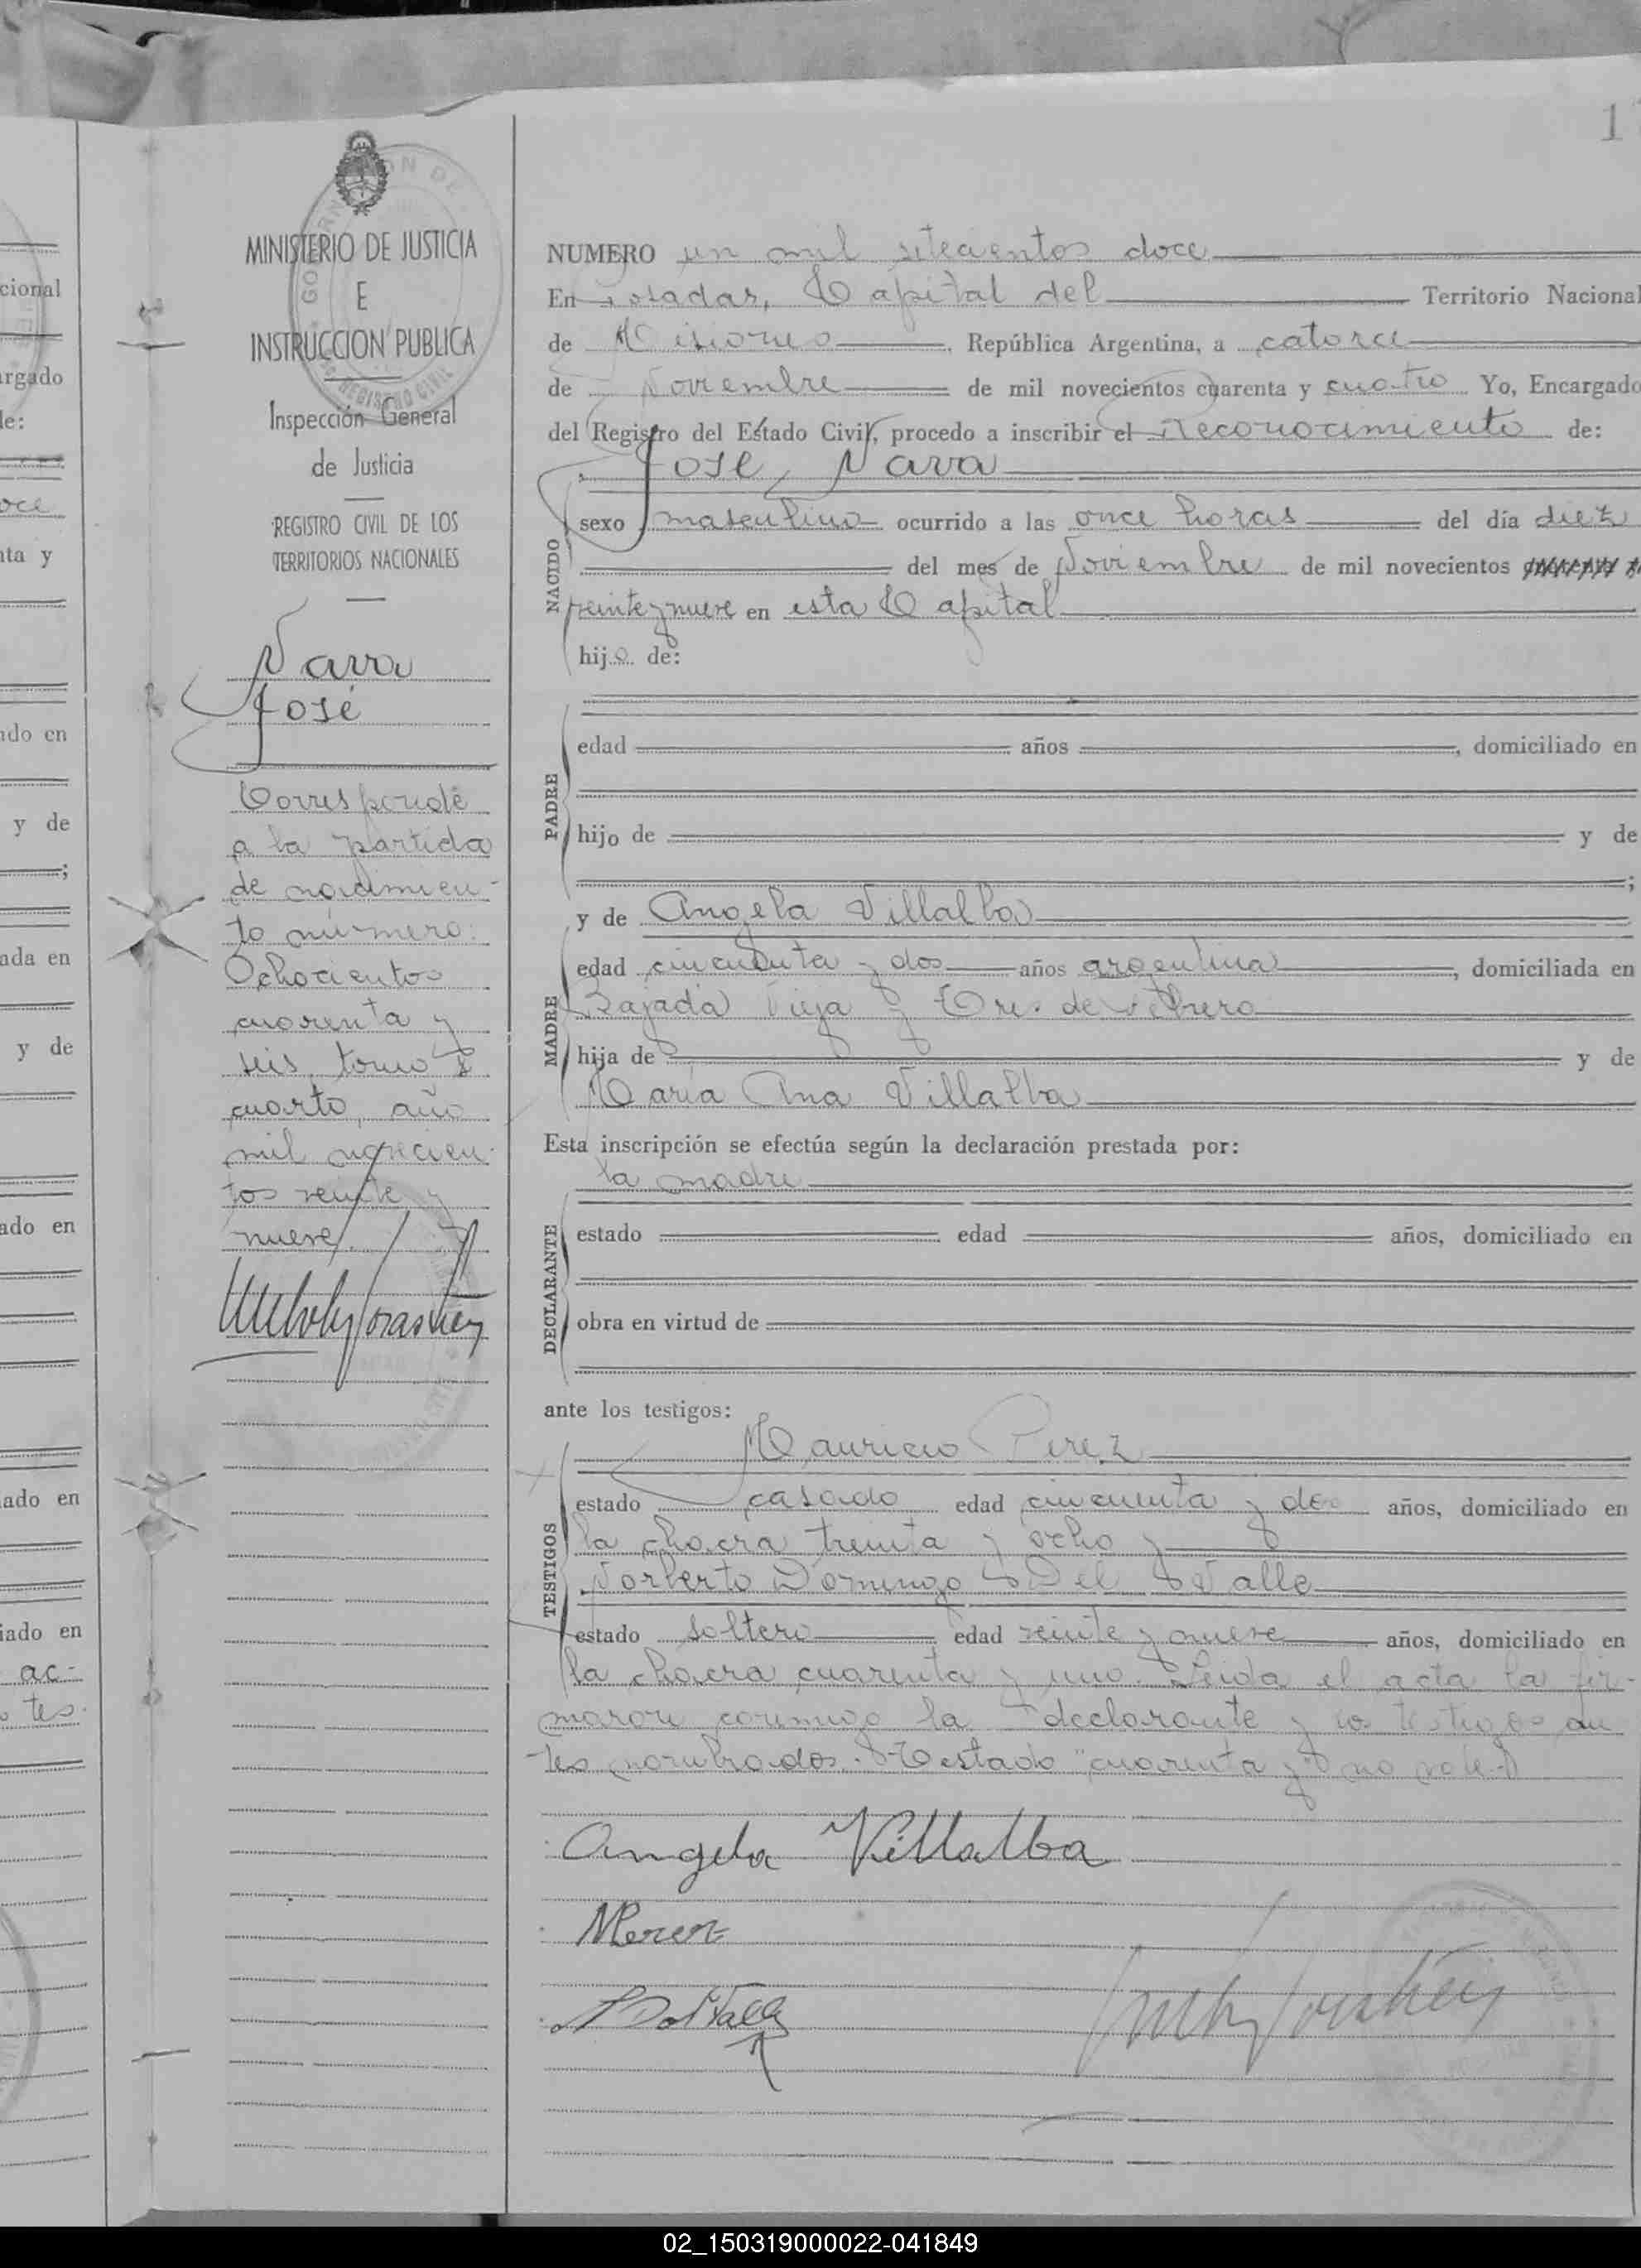 1
MINISTERIO DE JUSTICIA
E
INSTRUCCION PUBLICA
Inspección General
de Justicia
REGISTRO CIVIL DE LOS
TERRITORIOS NACIONALES
Nava
José
Corresponde
a la partida
de nacimien-
to número:
Ochocientos
cuarenta y
seis, tomo
cuarto, año
mil novecien-
tos veinte y
nueve.
NUMERO un mil setecientos doce
En Posadas, Capital del Territorio Nacional
de Misiones, República Argentina, a catorce
de Noviembre de mil novecientos cuarenta y cuatro Yo, Encargado
del Registro del Estado Civil, procedo a inscribir el Reconocimiento de:
José Nava
NACIDO
sexo masculino ocurrido a las once horas del día diez
del mes de Noviembre de mil novecientos
veinte y nueve en esta Capital
hijo de:
PADRE
edad años, domiciliado en
hijo de y de
;
MADRE
y de Angela Villalba
edad cincuenta y dos años argentina, domiciliada en
Bajada Vieja y Tres de Febrero
hija de y de
María Ana Villalba
Esta inscripción se efectúa según la declaración prestada por:
la madre
DECLARANTE
estado edad años, domiciliado en
obra en virtud de
ante los testigos:
Mauricio Perez
TESTIGOS
estado casado edad cincuenta y dos años, domiciliado en
la chacra treinta y ocho y
Norberto Domingo Del Valle
estado soltero edad veinte y nueve años, domiciliado en
la chacra cuarenta y uno. Leida el acta la fir-
maron conmigo la declarante y los testigos an
tes nombrados. Testado "cuarenta y" no vale.
Angela Villalba
MPerez
02_150319000022-041849